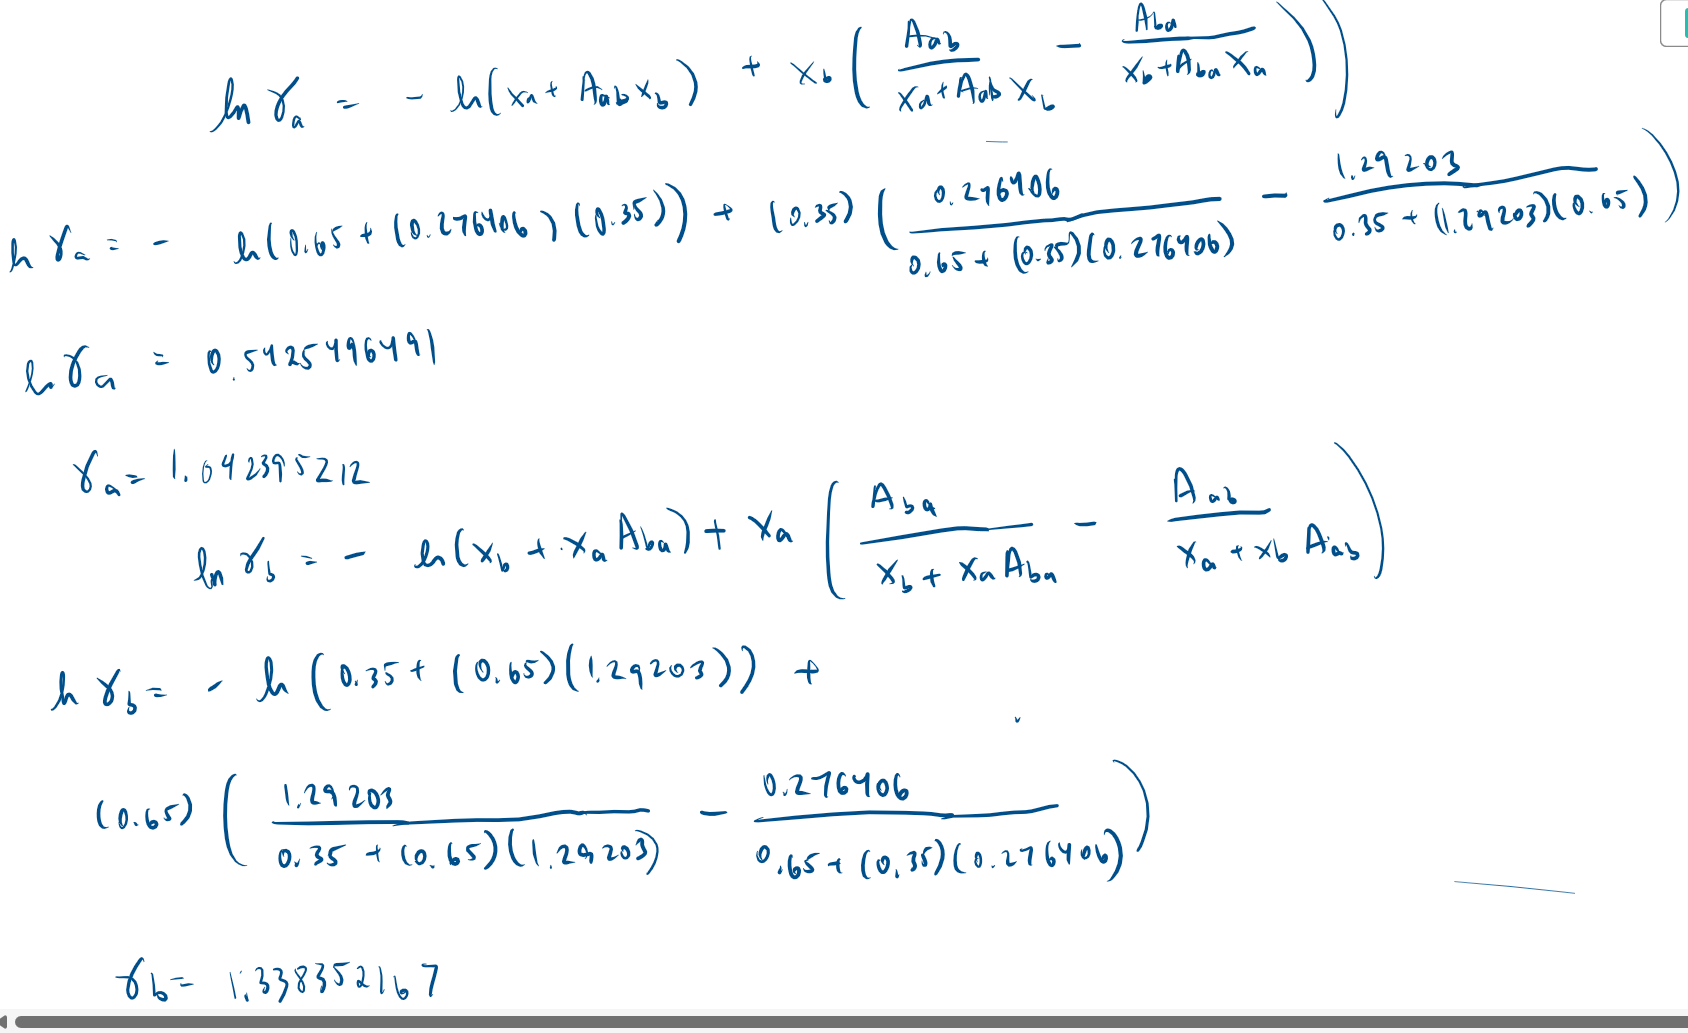 ln γa = - ln(xa + Aab xb) + xb ( Aab / (xa + Aab xb) - Aba / (xb + Aba xa) ) )
ln γa = - ln(0.65 + (0.276406)(0.35)) + (0.35) ( 0.276406 / (0.65 + (0.35)(0.276406)) - 1.29203 / (0.35 + (1.29203)(0.65)) )
ln γa = 0.5425496491
γa = 1.042395212
ln γb = - ln(xb + xa Aba) + xa ( Aba / (xb + xa Aba) - Aab / (xa + xb Aab) )
ln γb = - ln(0.35 + (0.65)(1.29203)) +
(0.65) ( 1.29203 / (0.35 + (0.65)(1.29203)) - 0.276406 / (0.65 + (0.35)(0.276406)) )
γb = 1.338352167